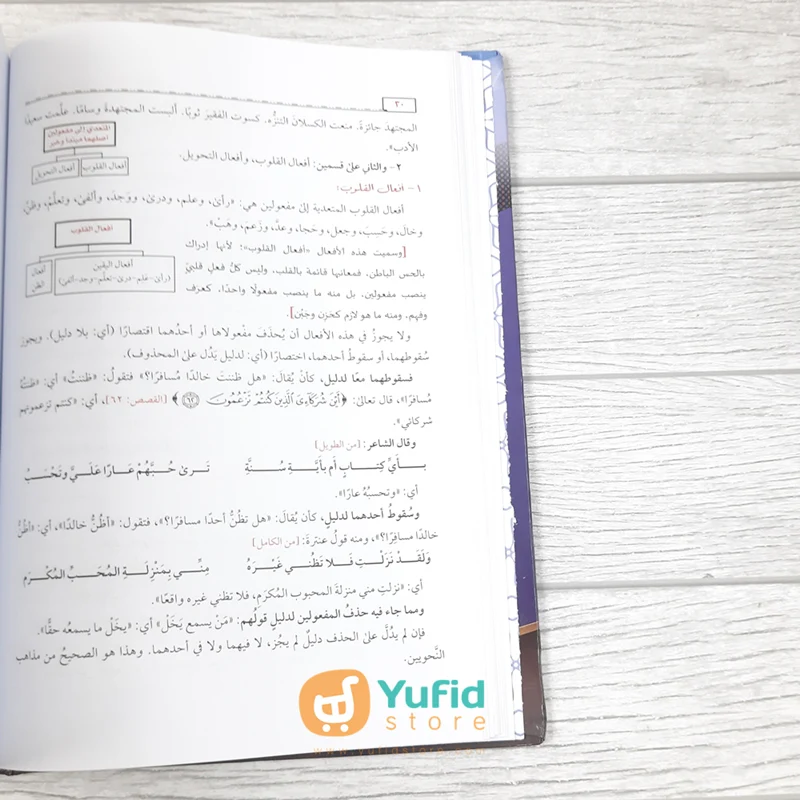 ٢٠
المجتهدَ جائزةً. منعت الكسلانَ التنزُّه. كسوت الفقيرَ ثوبًا. ألبست المجتهدةَ وسامًا. علَّمت سعيدًا
الأدب».
المتعدي إلى مفعولين
أصلهما مبتدأ وخبر
أفعال القلوب
أفعال التحويل
٢- والثاني على قسمين: أفعال القلوب، وأفعال التحويل.
١- أفعال القلوب:
أفعال القلوب المتعدية إلى مفعولين هي: «رأى، وعلم، ودرى، ووَجدَ، وألفى، وتعلَّمْ، وظنَّ،
وخالَ، وحَسِبَ، وجعل، وحَجا، وعدَّ، وزَعَمَ، وهَبْ».
أفعال القلوب
أفعال اليقين
(رأى-عَلِمَ-درى-تعلَّم-وجد-ألفى)
أفعال
الظن
[وسميت هذه الأفعال «أفعال القلوب»؛ لأنها إدراك
بالحس الباطن، فمعانيها قائمة بالقلب. وليس كلُّ فعلٍ قلبيٍّ
ينصب مفعولين، بل منه ما ينصب مفعولًا واحدًا، كعرَف
وفهِم. ومنه ما هو لازم كحَزِن وجبُن].
ولا يجوزُ في هذه الأفعال أن يُحذَفَ مفْعولاها أو أحدُهما اقتصارًا (أي: بلا دليل). ويجوز
سُقوطهما، أو سقوطُ أحدهما، اختصارًا (أي: لدليل يَدُل على المحذوف).
فسقوطهما معًا لدليل، كأن يُقالَ: «هل ظننتَ خالدًا مُسافرًا؟» فتقولُ: «ظَننتُ» أي: «ظننتُهُ
مُسافرًا»، قال تعالى: ﴿أَيْنَ شُرَكَاءِىَ ٱلَّذِينَ كُنتُمْ تَزْعُمُونَ ٦٢﴾ [القصص: ٦٢]، أي: «كنتم تزعمونهم
شركائي».
وقال الشاعر: [من الطويل]
بِـأَيِّ كِتـابٍ أَم بِأَيَّـةِ سُـنَّةٍ تَـرى حُبَّهُمْ عـارًا عَلَـيَّ وتَحْسَـبُ
أي: «وتحسبُهُ عارًا».
وسُقوطُ أحدهما لدليلٍ، كأن يُقالَ: «هل تظنُّ أحدًا مسافرًا؟»، فتقول: «أظُنُّ خالدًا»، أي: «أظُنُّ
خالدًا مسافرًا؟»، ومنه قولُ عنترةَ: [من الكامل]
وَلَقَـدْ نَزَلْـتِ فَـلا تَظُنـي غَيْـرَهُ مِنِّـي بِمَنْزِلـةِ المُحَـبِّ المُكْـرَمِ
أي: «نَزلتِ مني منزلةَ المحبوب المُكرَمِ، فلا تظني غيره واقعًا».
ومما جاء فيه حذفُ المفعولين لدليلٍ قولُهم: «مَنْ يسمع يَخَلْ» أي: «يخَلْ ما يسمعه حقًّا».
فإن لم يدُلَّ على الحذف دليلٌ لم يجُز، لا فيهما ولا في أحدهما. وهذا هو الصحيحُ من مذاهب
النَّحويين.
Yufid
store
www.yufidstore.com